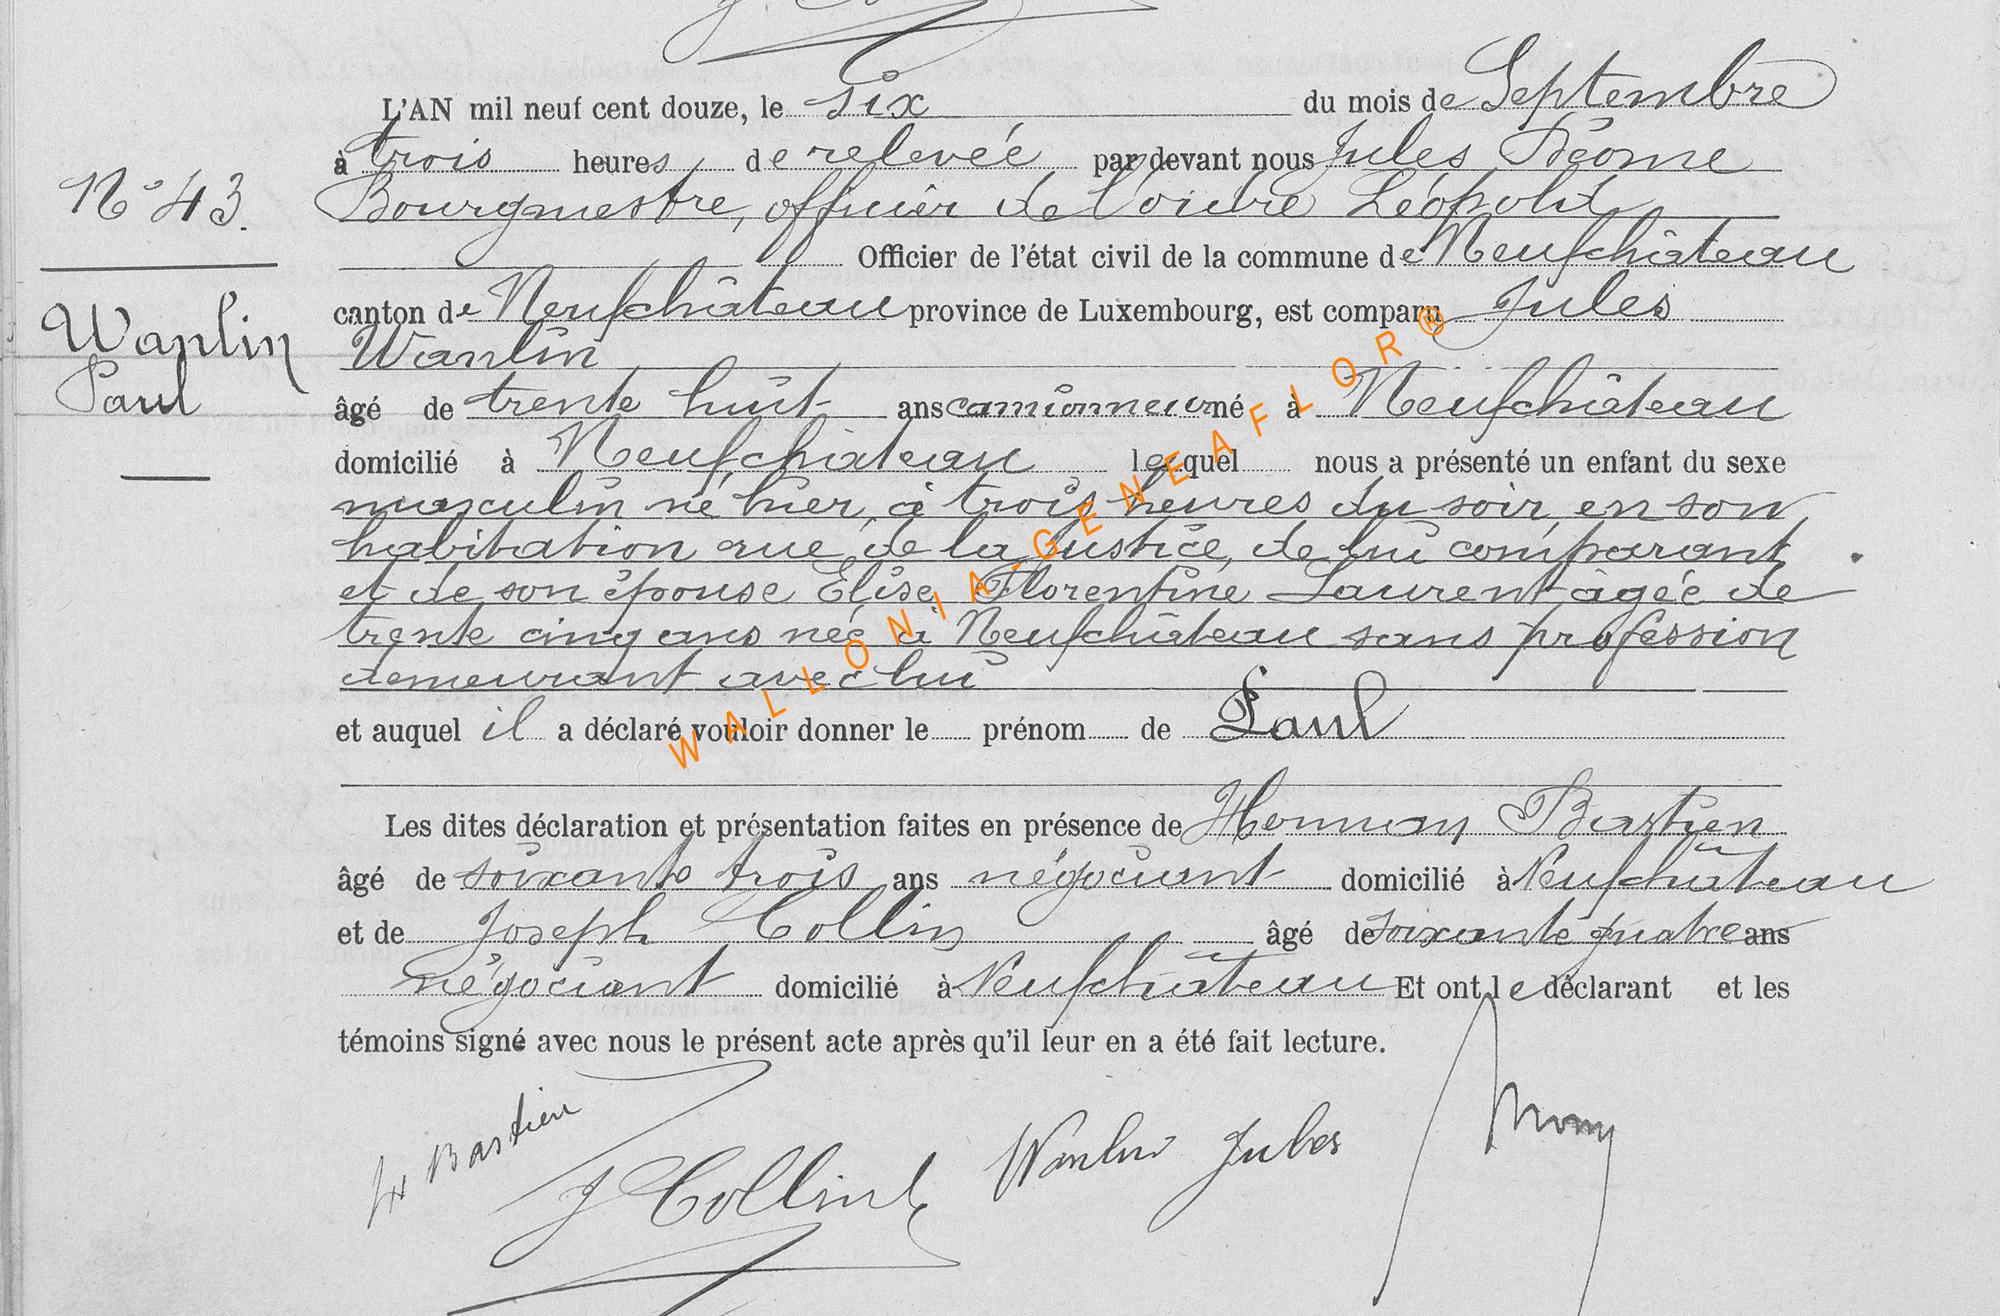 L'AN mil neuf cent douze, le six du mois de Septembre
à trois heures de relevée par devant nous Jules
N° 43. Bourgmestre, officier de l'ordre Léopold
Officier de l'état civil de la commune de Neufchâteau
canton de Neufchâteau province de Luxembourg, est comparu Jules
Wanlin
Wanlin
Paul
âgé de trente huit ans camionneur né à Neufchâteau
domicilié à Neufchâteau lequel nous a présenté un enfant du sexe
masculin né hier, à trois heures du soir, en son
habitation rue de la Justice, de lui comparant
et de son épouse Elise Florentine Laurent âgée de
trente cinq ans née à Neufchâteau sans profession
demeurant avec lui
et auquel il a déclaré vouloir donner le prénom de Paul
Les dites déclaration et présentation faites en présence de Bastien
âgé de soixante trois ans négociant domicilié à Neufchâteau
et de Joseph Collin âgé de soixante quatre ans
négociant domicilié à Neufchâteau Et ont le déclarant et les
témoins signé avec nous le présent acte après qu'il leur en a été fait lecture.
Bastien
J Collin
Wanlin Jules
WALLONIA-GENEAFLOR®